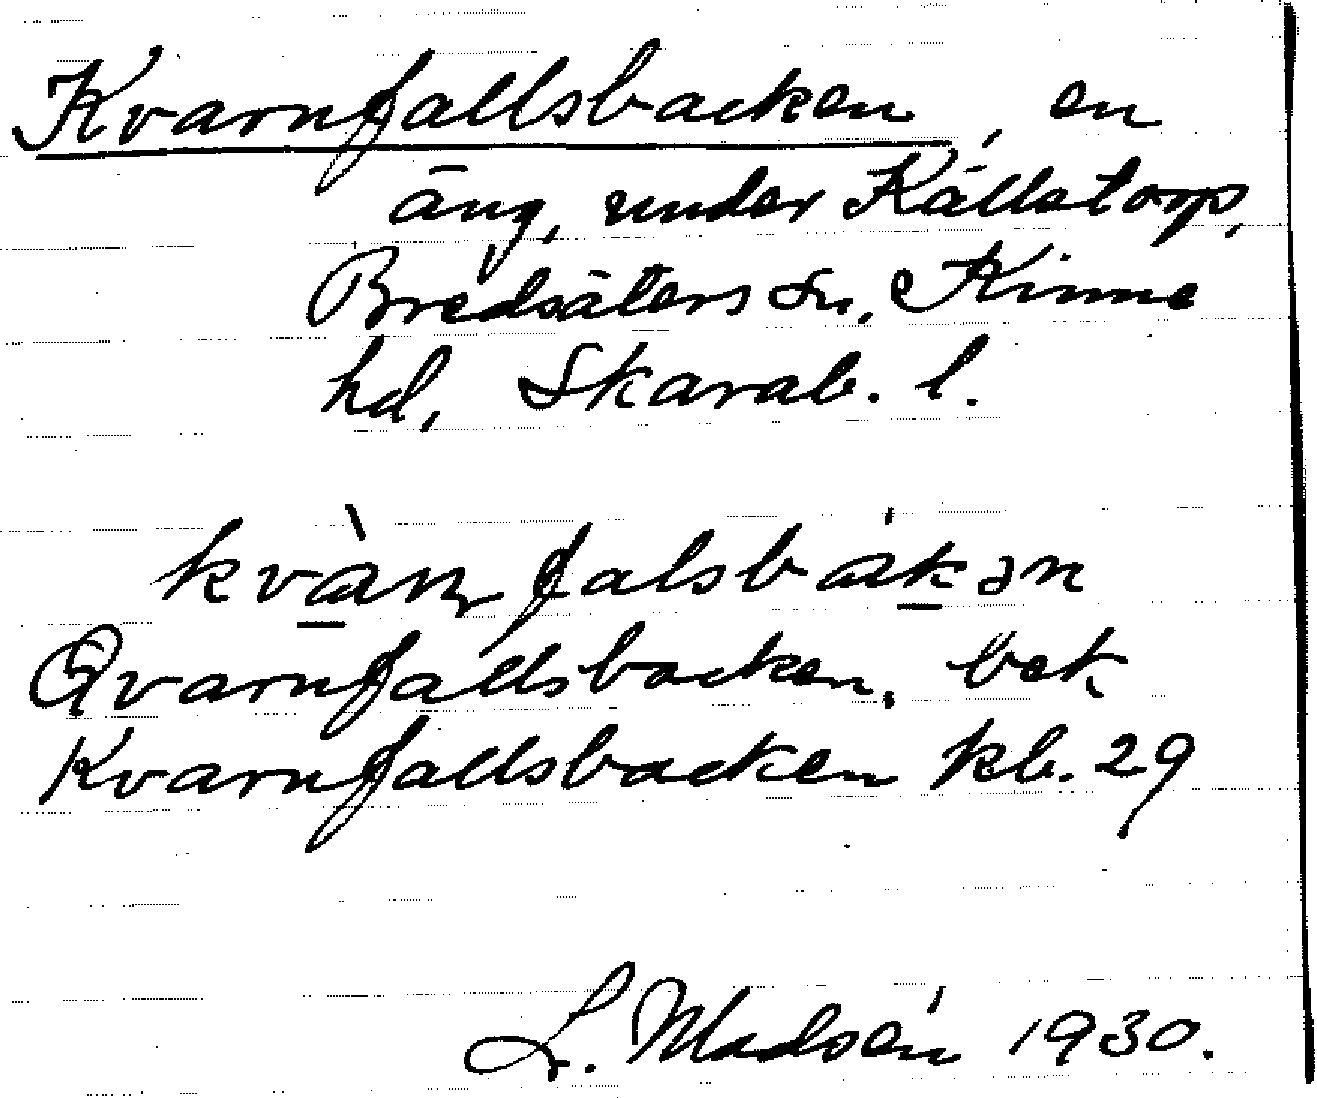 Kvarnfallsbacken, en
äng, under Källstorp,
Bredsäters sn, Kinne
hd, Skarab. l.
kvà̱ɳfalsbáḵən
Qvarnfallsbacken, bek
Kvarnfallsbacken kb. 29
L. Madsén 1930.